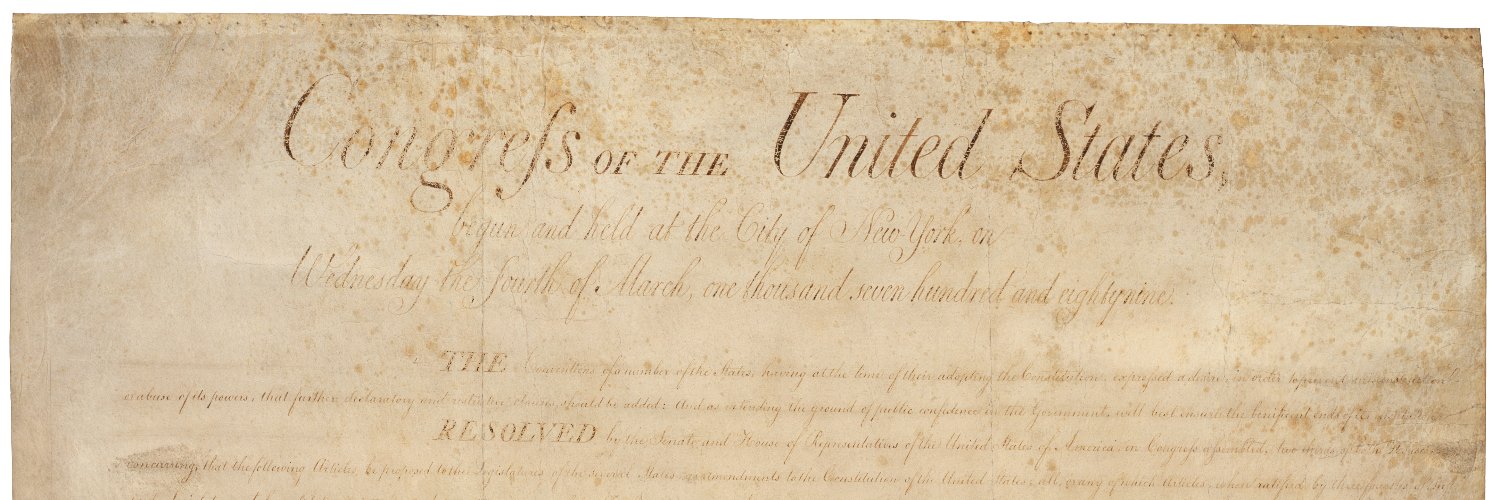 Congreſs OF THE United States,
begun and held at the City of New-York, on
Wednesday the fourth of March, one thousand seven hundred and eighty nine.
THE Conventions of a number of the States, having at the time of their adopting the Constitution, expressed a desire, in order to prevent misconstruction
or abuse of its powers, that further declaratory and restrictive clauses should be added: And as extending the ground of public confidence in the Government, will best ensure the beneficent ends of its
RESOLVED by the Senate and House of Representatives of the United States of America, in Congress assembled, two thirds of both Houses
concurring, that the following Articles be proposed to the Legislatures of the several States, as amendments to the Constitution of the United States, all, or any of which Articles, when ratified by three fourths of